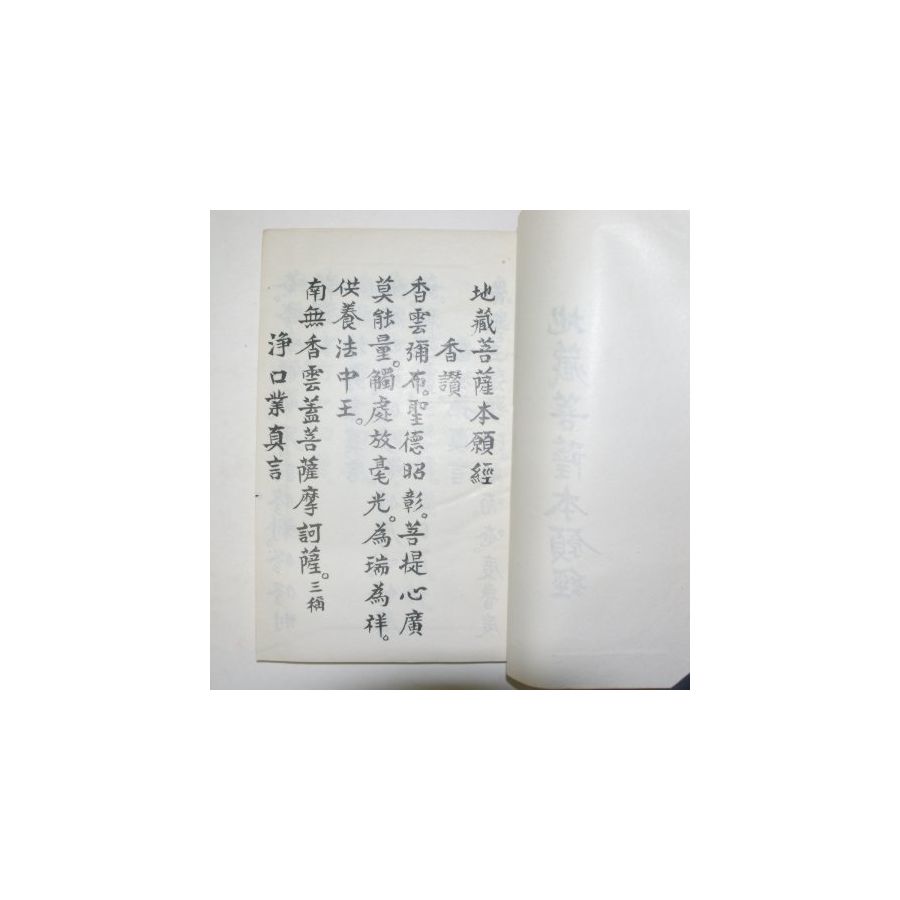 地藏菩薩本願經
地藏菩薩本願經
香讚
香雲彌布。聖德昭彰。菩提心廣
莫能量。觸處放毫光。為瑞為祥。
供養法中王。
南無香雲蓋菩薩摩訶薩。三稱
淨口業真言